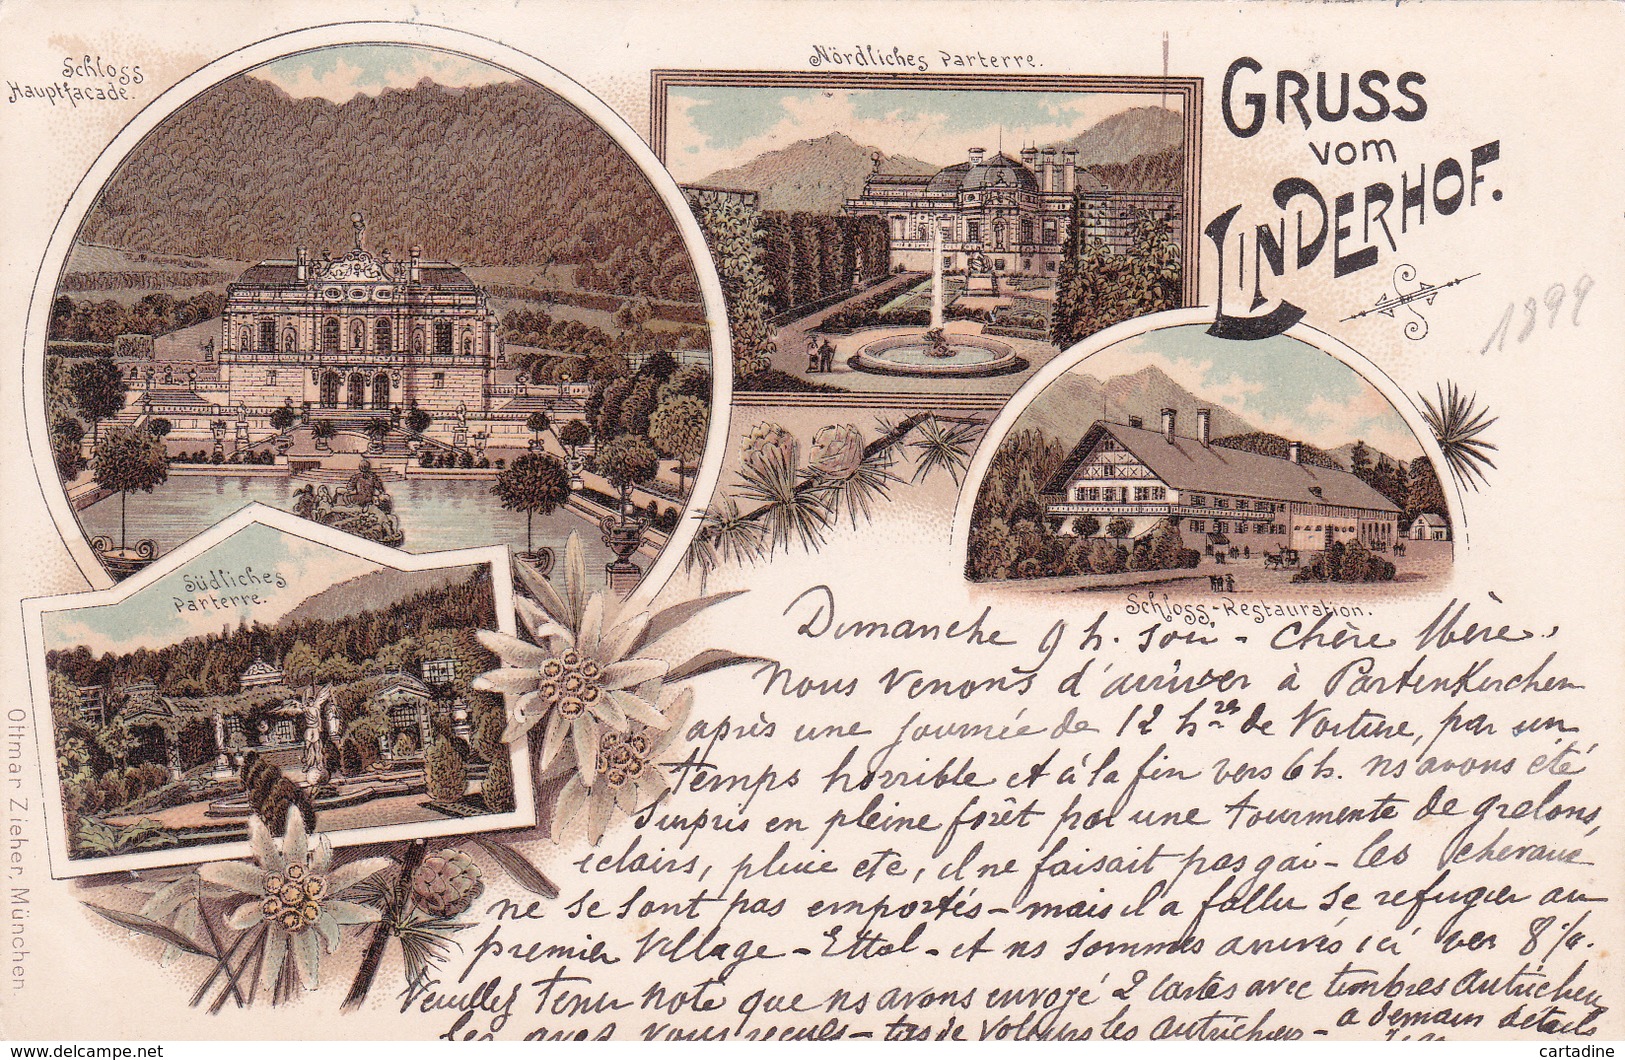 Schloss
Hauptfacade.
Nördliches Parterre.
GRUSS
vom
LINDERHOF.
1899
Südliches
Parterre.
Schloss-Restauration.
Ottmar Zieher, München.
Dimanche 9 h. soir - Chère Mère,
Nous venons d'arriver à Partenkirchen
après une journée de 12 hres de Voiture, par un
temps horrible et à la fin vers 6 h. ns avons été
surpris en pleine forêt par une tourmente de grelons,
éclairs, pluie etc, il ne faisait pas gai - les chevaux
ne se sont pas emportés - mais il a fallu se refugier au
premier village - Ettal - et ns sommes arrivés ici ver 8½.
Veuillez tenir note que ns avons envoyé 2 cartes avec timbres Autrichiens
les avez vous reçues - tas de voleurs les Autrichiens - a demain détails
cartadine
delcampe.net